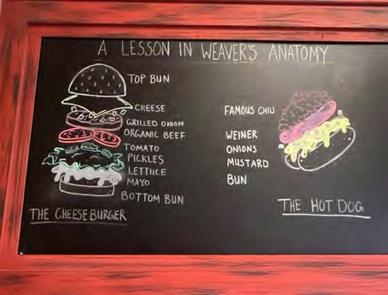 A LESSON IN WEAVER'S ANATOMY
TOP BUN
CHEESE
GRILLED ONION
ORGANIC BEEF
TOMATO
PICKLES
LETTUCE
MAYO
BOTTOM BUN
THE CHEESEBURGER
FAMOUS CHILI
WEINER
ONIONS
MUSTARD
BUN
THE HOT DOG